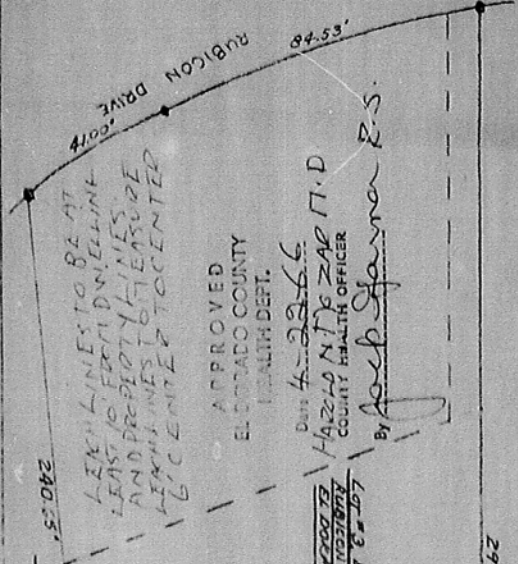 RUBICON DRIVE
84.53'
41.00'
LEACH LINES TO BE AT
LEAST 10' FROM DWELLING
AND PROPERTY LINES.
LEACH LINES TO MEASURE
6' CENTER TO CENTER
240.25'
APPROVED
EL DORADO COUNTY
HEALTH DEPT.
Date 4-22-66
HAROLD N. M.D
COUNTY HEALTH OFFICER
By Jack R.S.
LOT #3,
RUBICON
EL DORA
29